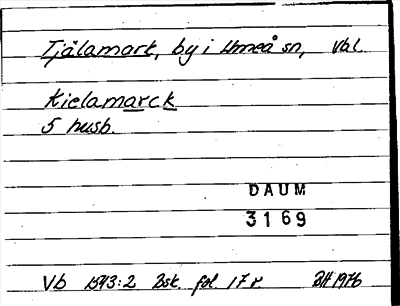 Tjälamark, by i Umeå sn, Vbl.
Kielamarck
5 husb.
DAUM
3169
Vb 1543:2 Bsk. fol 17 r BH 1976